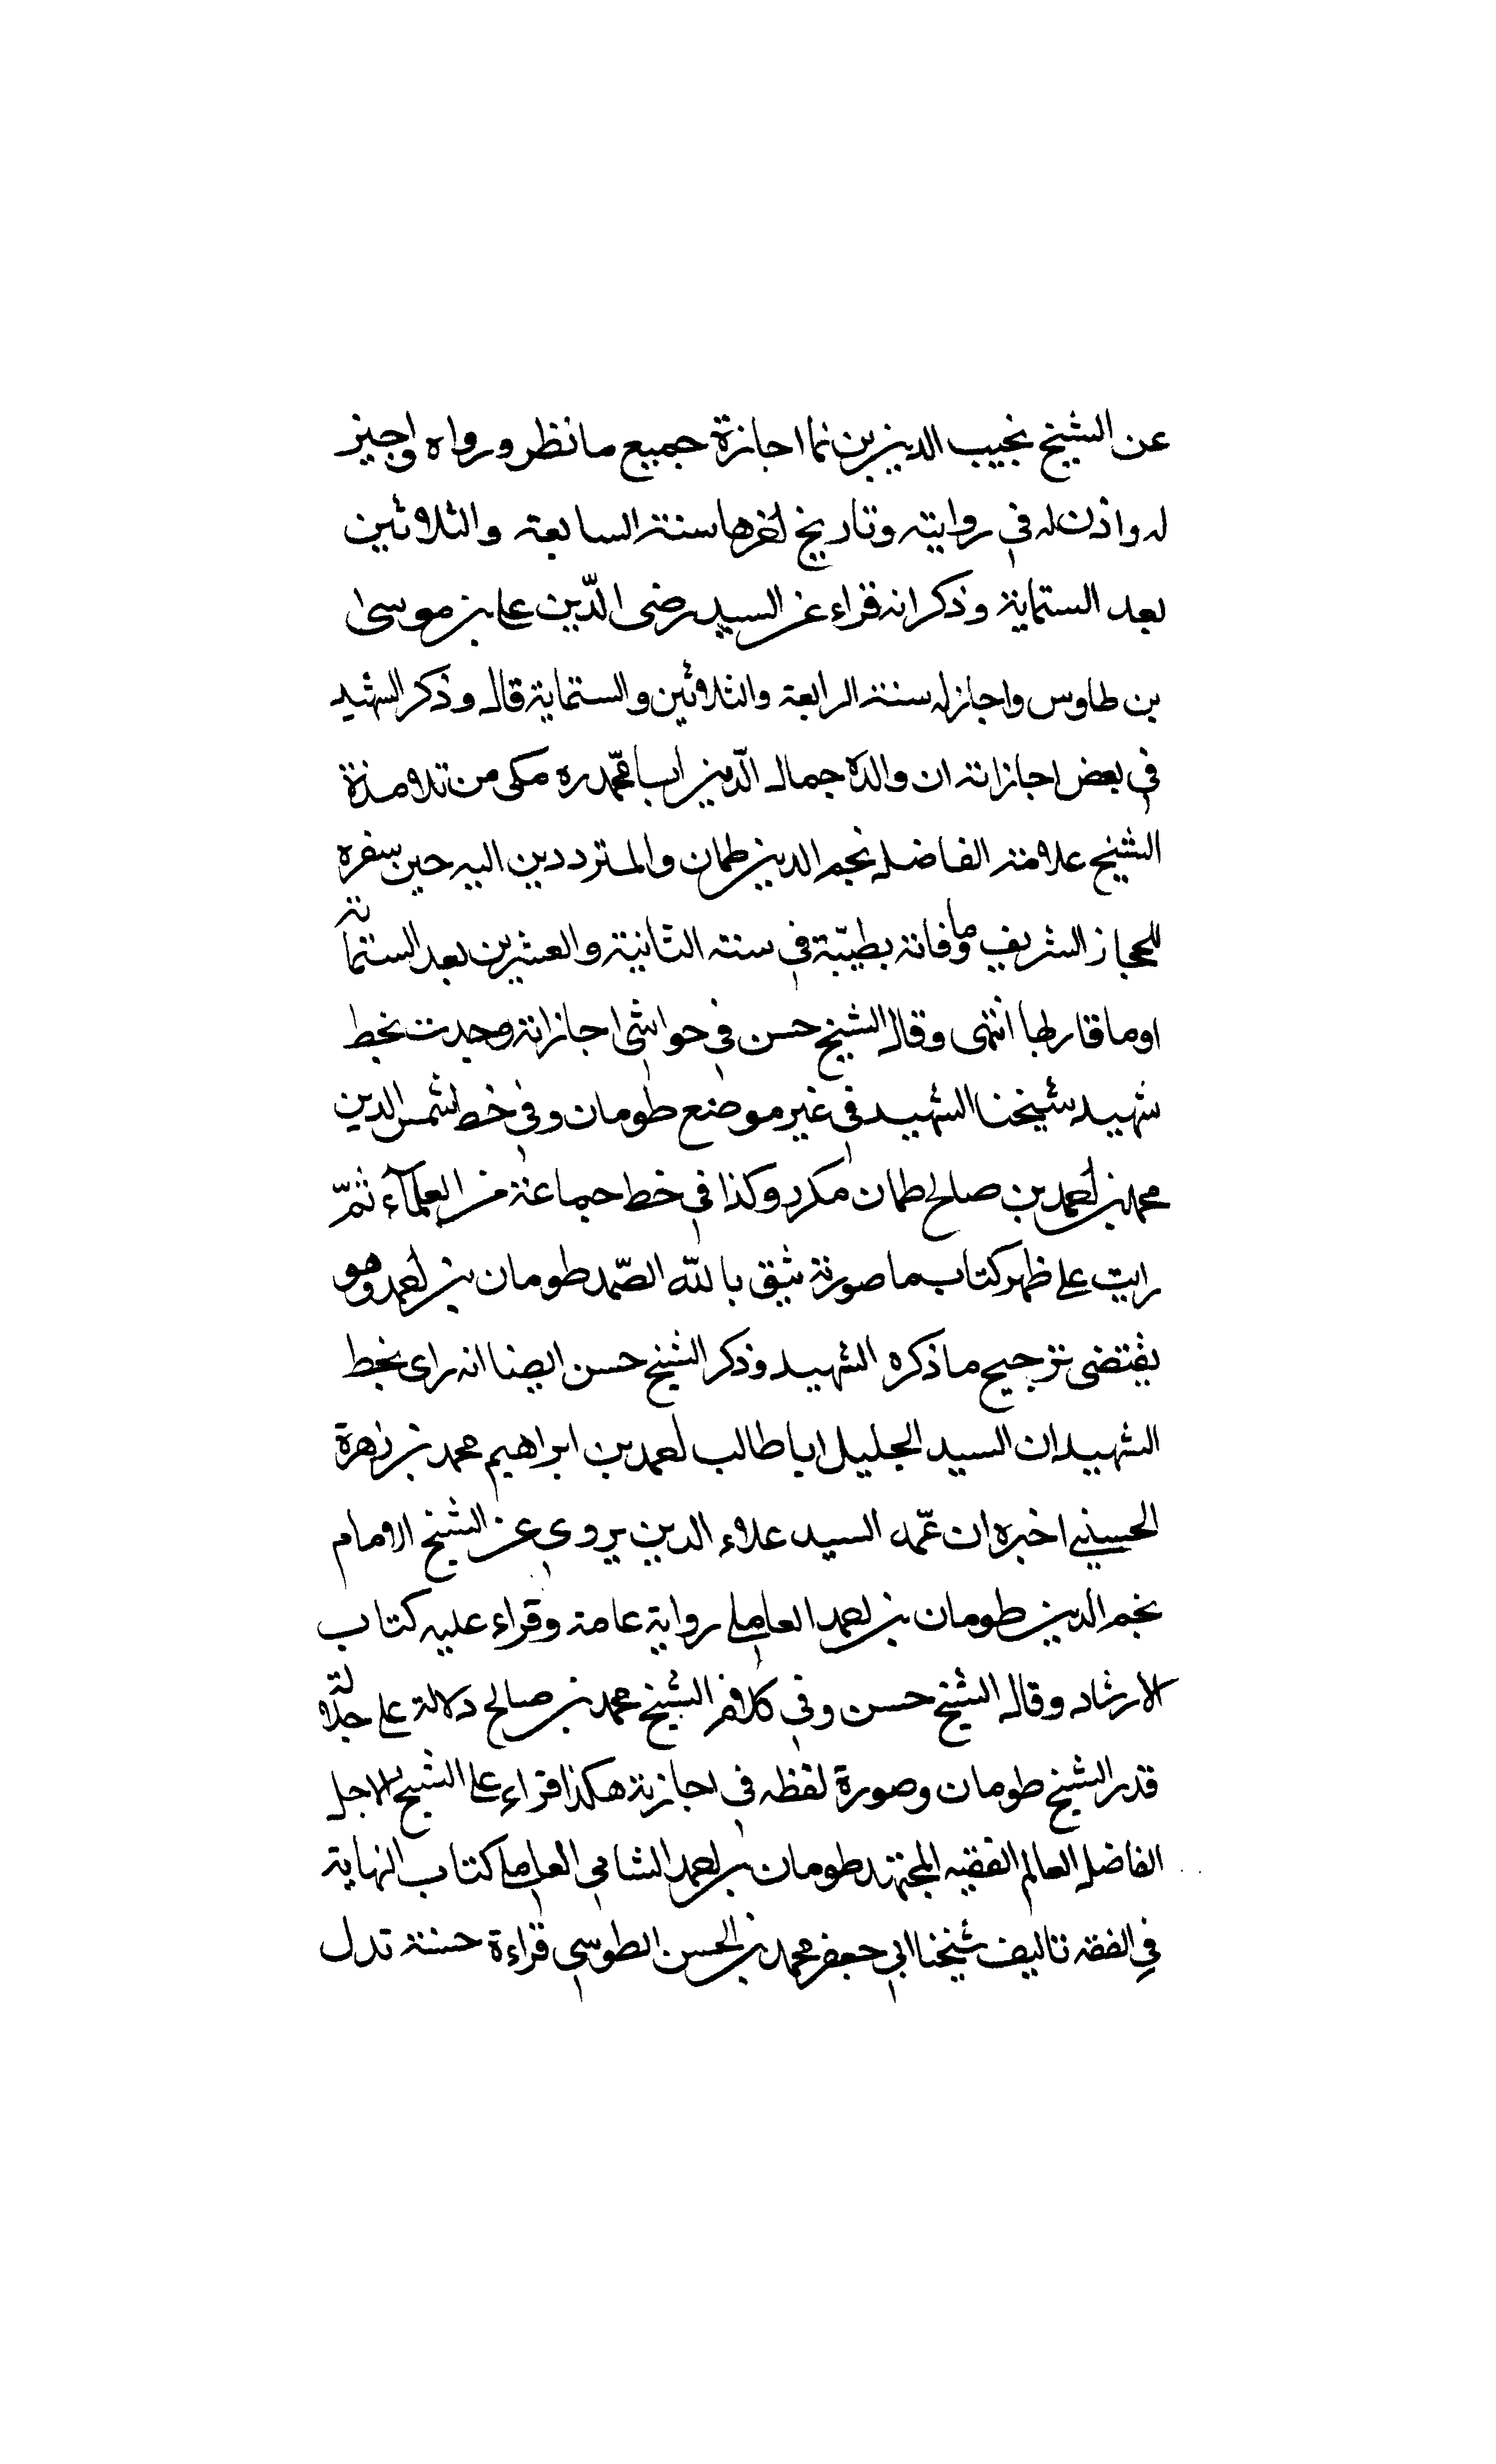 عن الشيخ نجيب الدين بن نما اجازة جميع ما نظر ورواه واجيز
له واذن له في روايته وتاريخ اخرها سنة السابعة والثلاثين
بعد الستماية وذكر انه قراء عن السيد رضى الدّين على بن موسى
بن طاوس واجاز له سنة الرابعة والثلاثين والستماية قال وذكر الشهيد
في بعض اجازاته ان والده جمال الدّين ابا محمّد ره مكى من تلامذة
الشيخ علامة الفاضل نجم الدين طمان والمترددين اليه حين سفره
للحجاز الشريف وفاته بطيّبة في سنة الثانية والعشرين بعد الستماية
او ما قاربها انتهى وقال الشيخ حسن في حواشى اجازاته وجدت بخط
شهيد شيخنا الشهيد في غير موضع طومان وفي خط شمس الدين
محمد بن احمد بن صالح طمان مكرر وكذا في خط جماعة من العلمآء ثمّ
رايت على ظهر كتاب ما صورته يثق بالله الصّمد طومان بن احمد وهو
يقتضى ترجيح ما ذكره الشهيد وذكر الشيخ حسن ايضا انه راى بخط
الشهيد ان السيد الجليل ابا طالب احمد بن ابراهيم محمد بن زهرة
الحسيني اخبره ان عمّه السيد علاء الدين يروى عن الشيخ الامام
نجم الدين طومان بن احمد العاملي رواية عامة وقراء عليه كتاب
الارشاد وقال الشيخ حسن وفي كلام الشيخ محمد بن صالح دلالة على جلالة
قدر الشيخ طومان وصورة لفظه في اجازته هكذا قراء على الشيخ الاجل
الفاضل العالم الفقيه المجتهد طومان بن احمد الشامي العاملي كتاب النهاية
في الفقه تاليف شيخنا ابي جعفر محمد بن الحسن الطوسي قراءة حسنة تدل